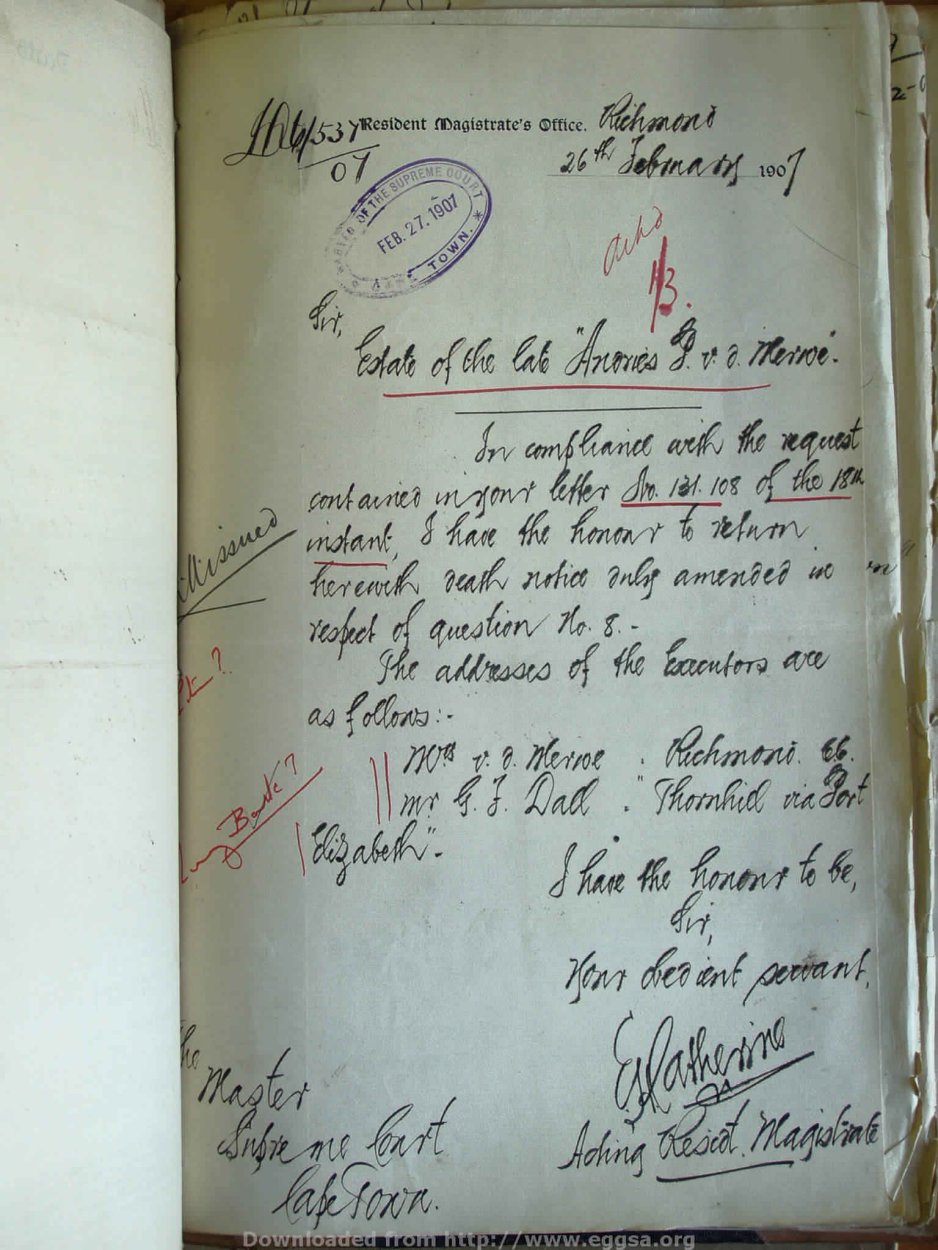 Resident Magistrate's Office. Richmond
/537
07
26th February 1907
MASTER OF THE SUPREME COURT
FEB. 27. 1907
TOWN.
Ackd
1/3.
Sir,
Estate of the late "Andries P. v. d. Merwe".
In compliance with the request
contained in your letter No. 131. 108 of the 18th
instant, I have the honour to return
herewith death notice duly amended in
respect of question No. 8. -
The addresses of the Executors are
as follows:-
Mrs v. d. Merwe . Richmond.
Mr G. F. Dall . "Thornhill via Port
Elizabeth".
I have the honour to be,
Sir,
Your obedient servant,
Acting Residt. Magistrate
The
Master
Supreme Court
Cape Town.
issued
?
Downloaded from http://www.eggsa.org